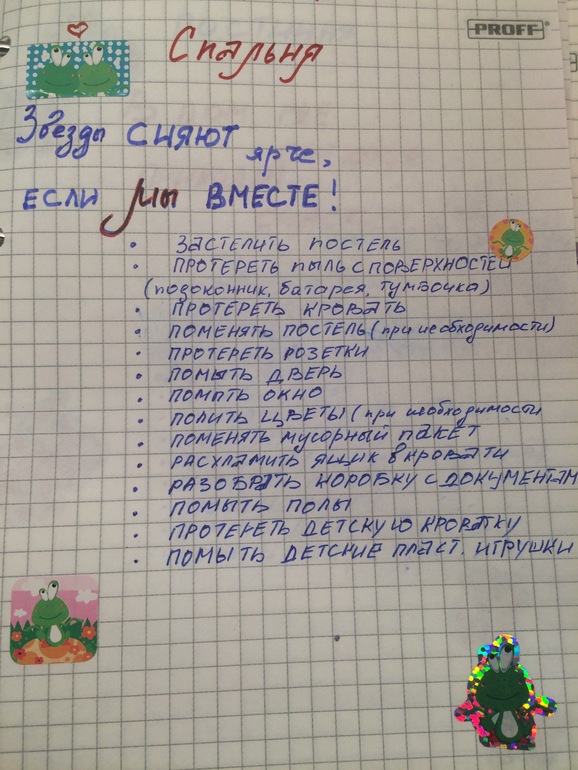 PROFF
Спальня
Звезды СИЯЮТ ярче,
ЕСЛИ МЫ ВМЕСТЕ!
• ЗАСТЕЛИТЬ ПОСТЕЛЬ
• ПРОТЕРЕТЬ ПЫЛЬ С ПОВЕРХНОСТЕЙ
(подоконник, батарея, тумбочка)
• ПРОТЕРЕТЬ КРОВАТЬ
• ПОМЕНЯТЬ ПОСТЕЛЬ (при необходимости)
• ПРОТЕРЕТЬ РОЗЕТКИ
• ПОМЫТЬ ДВЕРЬ
• ПОМЫТЬ ОКНО
• ПОЛИТЬ ЦВЕТЫ (при необходимости
• ПОМЕНЯТЬ МУСОРНЫЙ ПАКЕТ
• РАСХЛАМИТЬ ЯЩИК В КРОВАТИ
• РАЗОБРАТЬ КОРОБКУ С ДОКУМЕНТАМ
• ПОМЫТЬ ПОЛЫ
• ПРОТЕРЕТЬ ДЕТСКУЮ КРОВАТКУ
• ПОМЫТЬ ДЕТСКИЕ ПЛАСТ. ИГРУШКИ